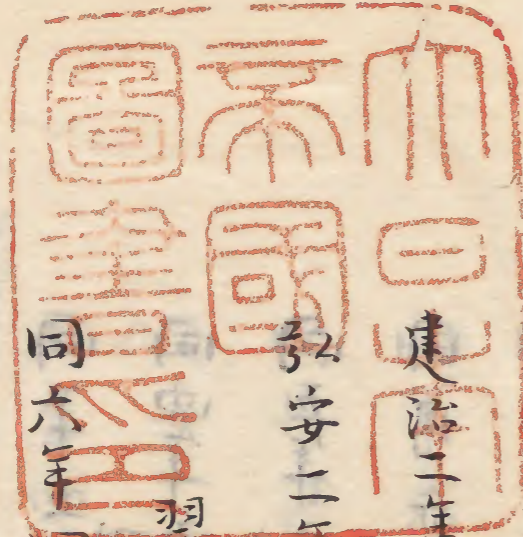 大日本
帝國
圖書印
建治二年
弘安二年
翌
同六年